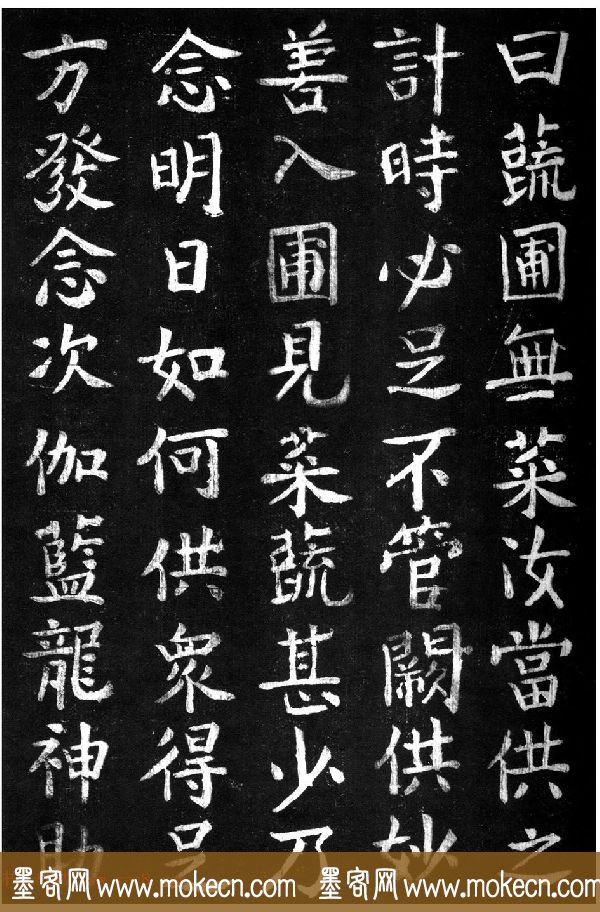 曰蔬圃無菜汝當供之
計時必足不管闕供妙
善入圃見菜蔬甚少乃
念明日如何供衆得足
方發念次伽藍龍神助
墨客网 www.mokecn.com 墨客网 www.mokecn.com